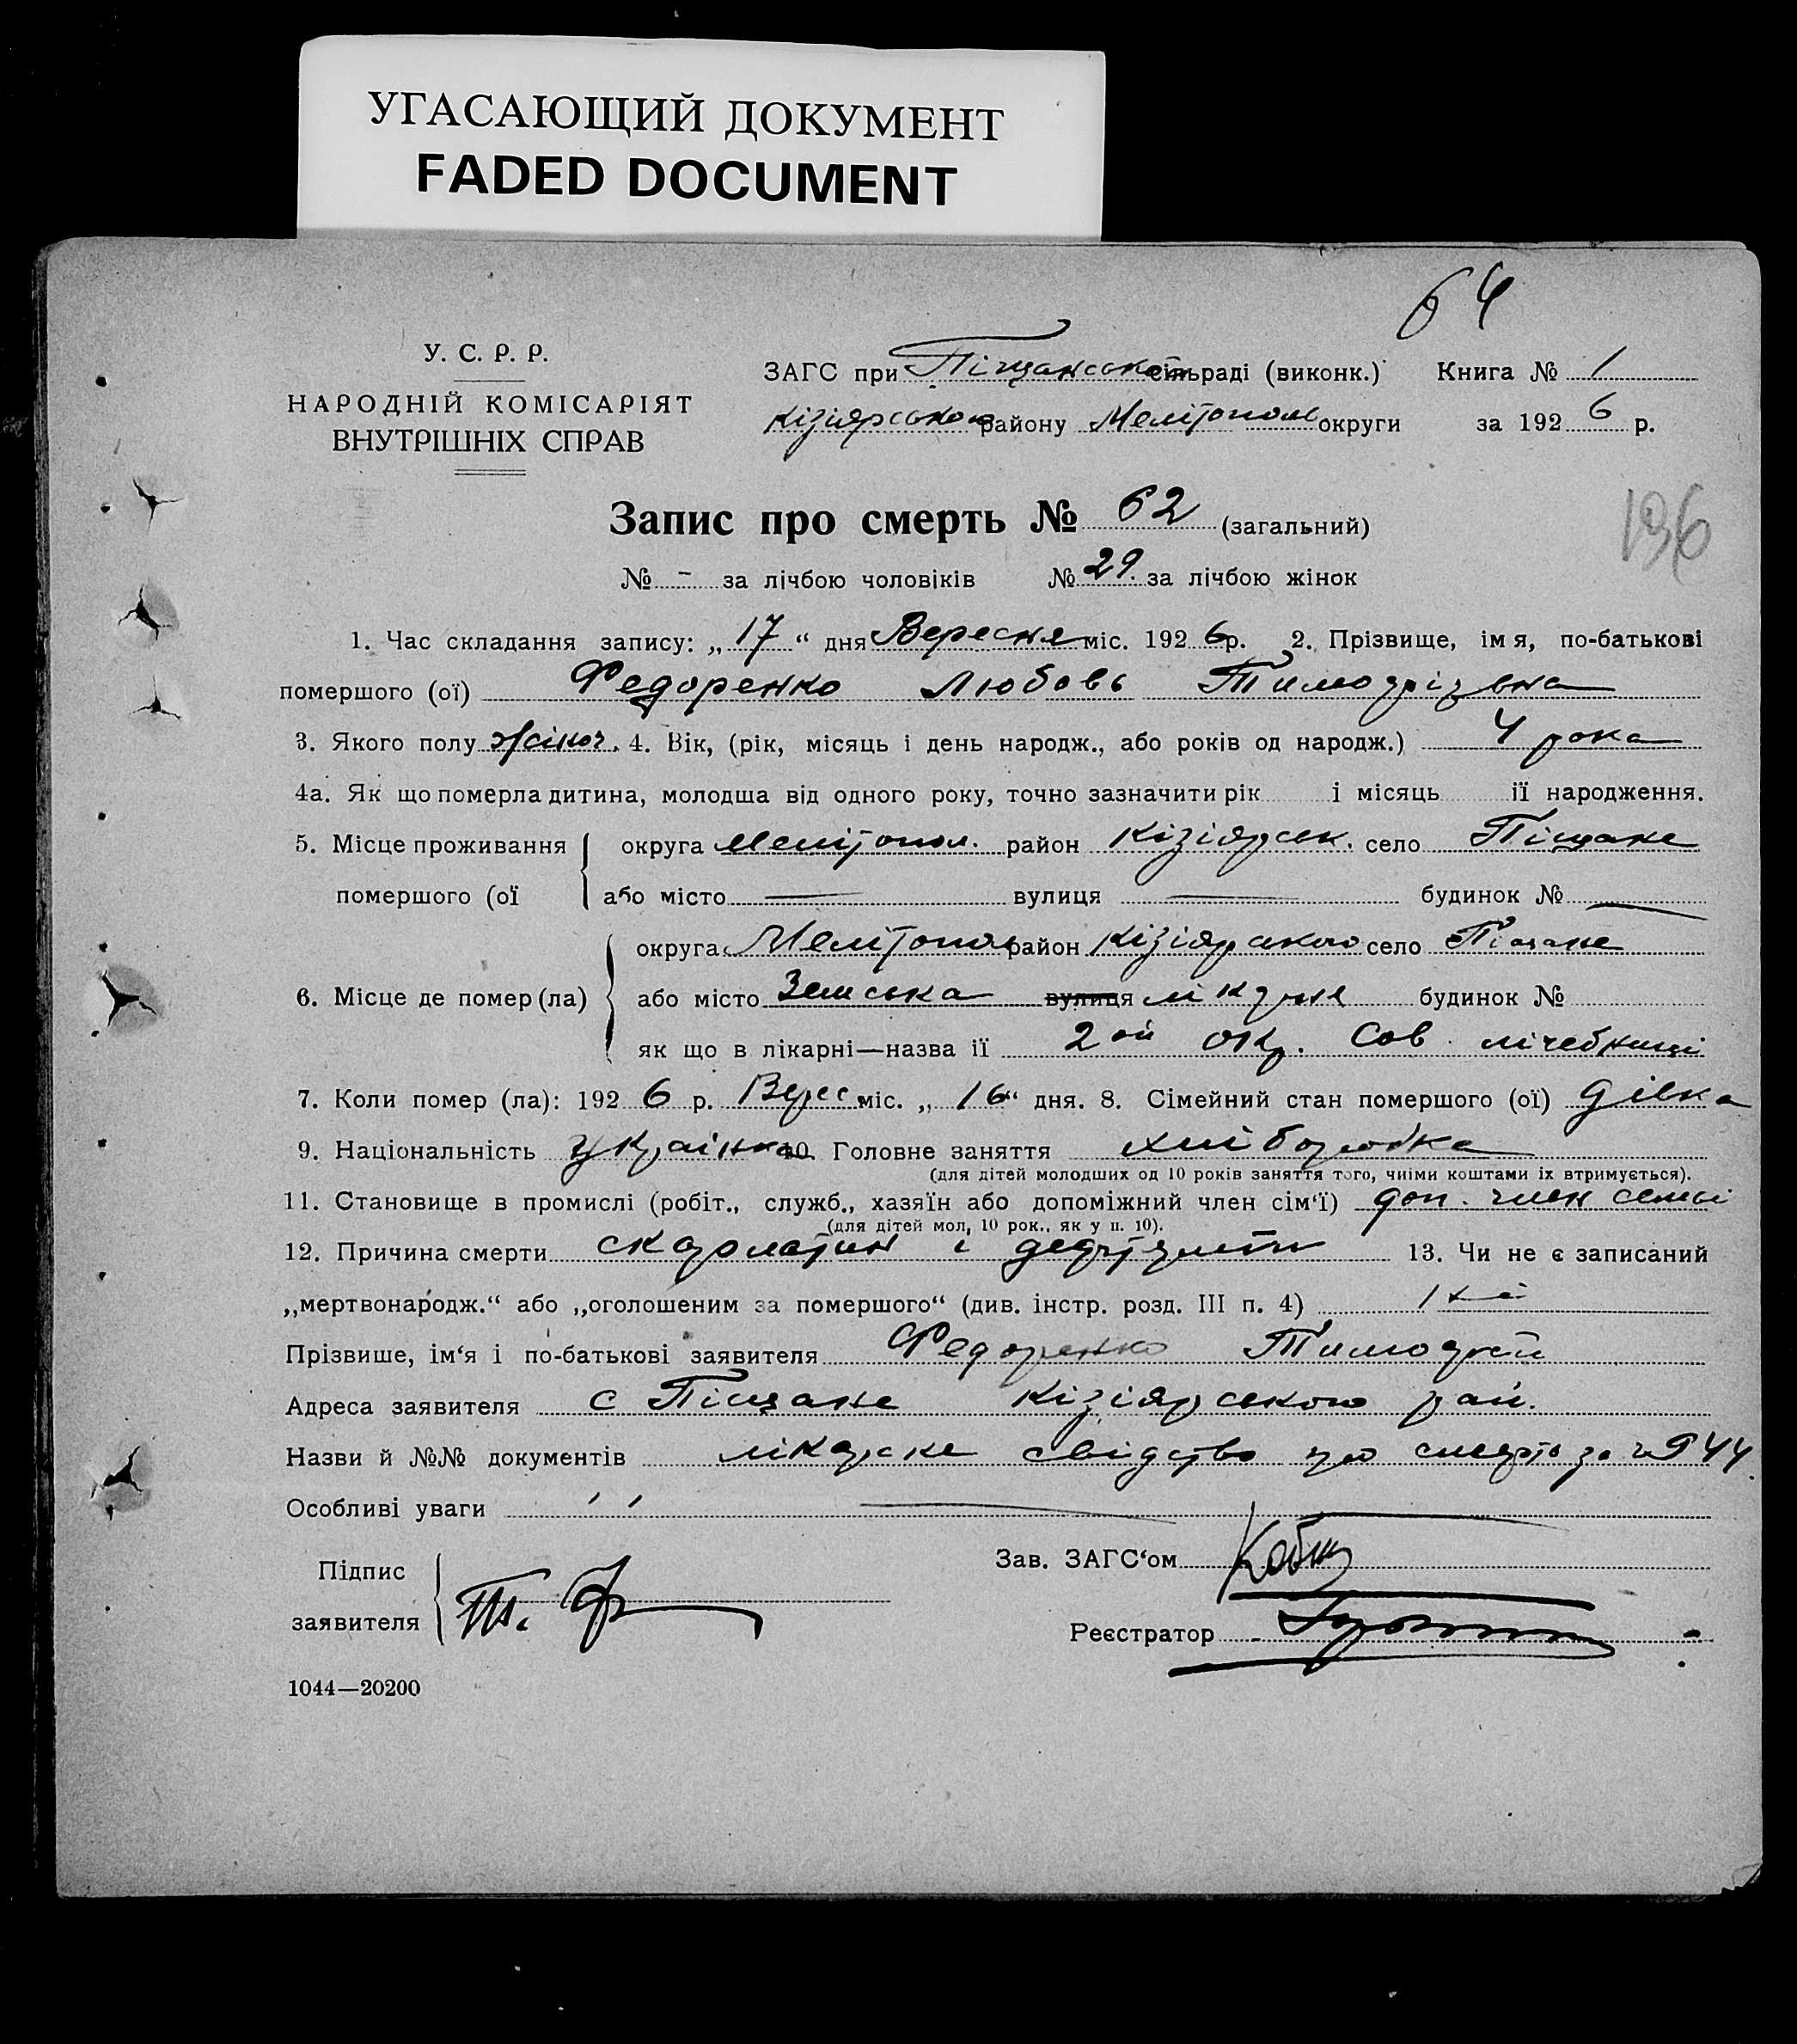 УГАСАЮЩИЙ ДОКУМЕНТ
FADED DOCUMENT
64
У. С. Р. Р.
НАРОДНІЙ КОМІСАРІЯТ
ВНУТРІШНІХ СПРАВ
ЗАГС при Піщанській сільраді (виконк.) Книга № 1
Кізіярського району Мелітополь округи за 1926 р.
196
Запис про смерть № 62 (загальний)
№ - за лічбою чоловіків № 29. за лічбою жінок
1. Час складання запису: „17“ дня Вересня міс. 1926 р. 2. Прізвище, імя, по-батькові
помершого (ої) Федоренко Любовь
3. Якого полу жіноч. 4. Вік, (рік, місяць і день народж., або років од народж.) 4 рока
4а. Як що померла дитина, молодша від одного року, точно зазначити рік і місяць ії народження.
5. Місце проживання округа Мелітопол. район Кізіярськ. село Піщане
помершого (ої або місто — вулиця — будинок № —
округа Мелітополь район Кізіярського село Піщане
6. Місце де помер (ла) або місто Земська вулиця лікарня будинок №
як що в лікарні—назва ії 2ой окр. Сов. лічебниці
7. Коли помер (ла): 1926 р. Верес міс. „16“ дня. 8. Сімейний стан помершого (ої) дівка
9. Національність Українка 10. Головне заняття хліборобка
(для дітей молодших од 10 років заняття того, чиїми коштами їх втримується).
11. Становище в промислі (робіт., служб., хазяїн або допоміжний член сім‘ї) доп. член семьі
(для дітей мол, 10 рок., як у п. 10).
12. Причина смерти скарлатин і 13. Чи не є записаний
„мертвонародж.“ або „оголошеним за помершого“ (див. інстр. розд. III п. 4)
Прізвише, ім‘я і по-батькові заявителя Федоренко Тимофій
Адреса заявителя с Піщане Кізіярського рай.
Назви й №№ документів лікарске свідство про смерть за № 944
Особливі уваги
Підпис
заявителя
Зав. ЗАГС‘ом
Реєстратор
1044—20200